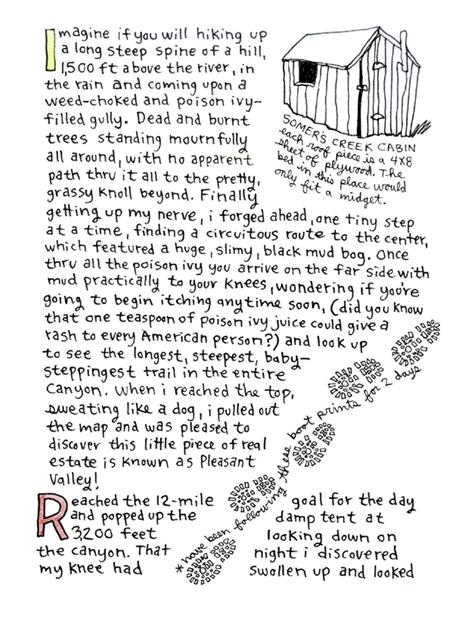 Imagine if you will hiking up
a long steep spine of a hill,
1,500 ft above the river, in
the rain and coming upon a
weed-choked and poison ivy-
filled gully. Dead and burnt
trees standing mournfully
all around, with no apparent
path thru it all to the pretty,
grassy knoll beyond. Finally
getting up my nerve, i forged ahead, one tiny step
at a time, finding a circuitous route to the center,
which featured a huge, slimy, black mud bog. Once
thru all the poison ivy you arrive on the far side with
mud practically to your knees, wondering if you're
going to begin itching anytime soon, (did you know
that one teaspoon of poison ivy juice could give a
rash to every American person?) and look up
to see the longest, steepest, baby-
steppingest trail in the entire
Canyon. When i reached the top,
sweating like a dog, i pulled out
the map and was pleased to
discover this little piece of real
estate is known as Pleasant
Valley!
SOMER'S CREEK CABIN
each roof piece is a 4X8
sheet of plywood. The
bed in this place would
only fit a midget.
*have been following these boot prints for 2 days
Reached the 12-mile goal for the day
and popped up the damp tent at
3,200 feet looking down on
the canyon. That night i discovered
my knee had swollen up and looked